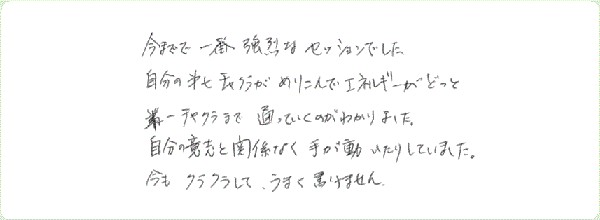 今までで一番強烈なセッションでした。
自分の第七チャクラがめりこんでエネルギーがどっと
第一チャクラまで通っていくのがわかりました。
自分の意志と関係なく手が動いたりしていました。
今もクラクラして、うまく書けません。